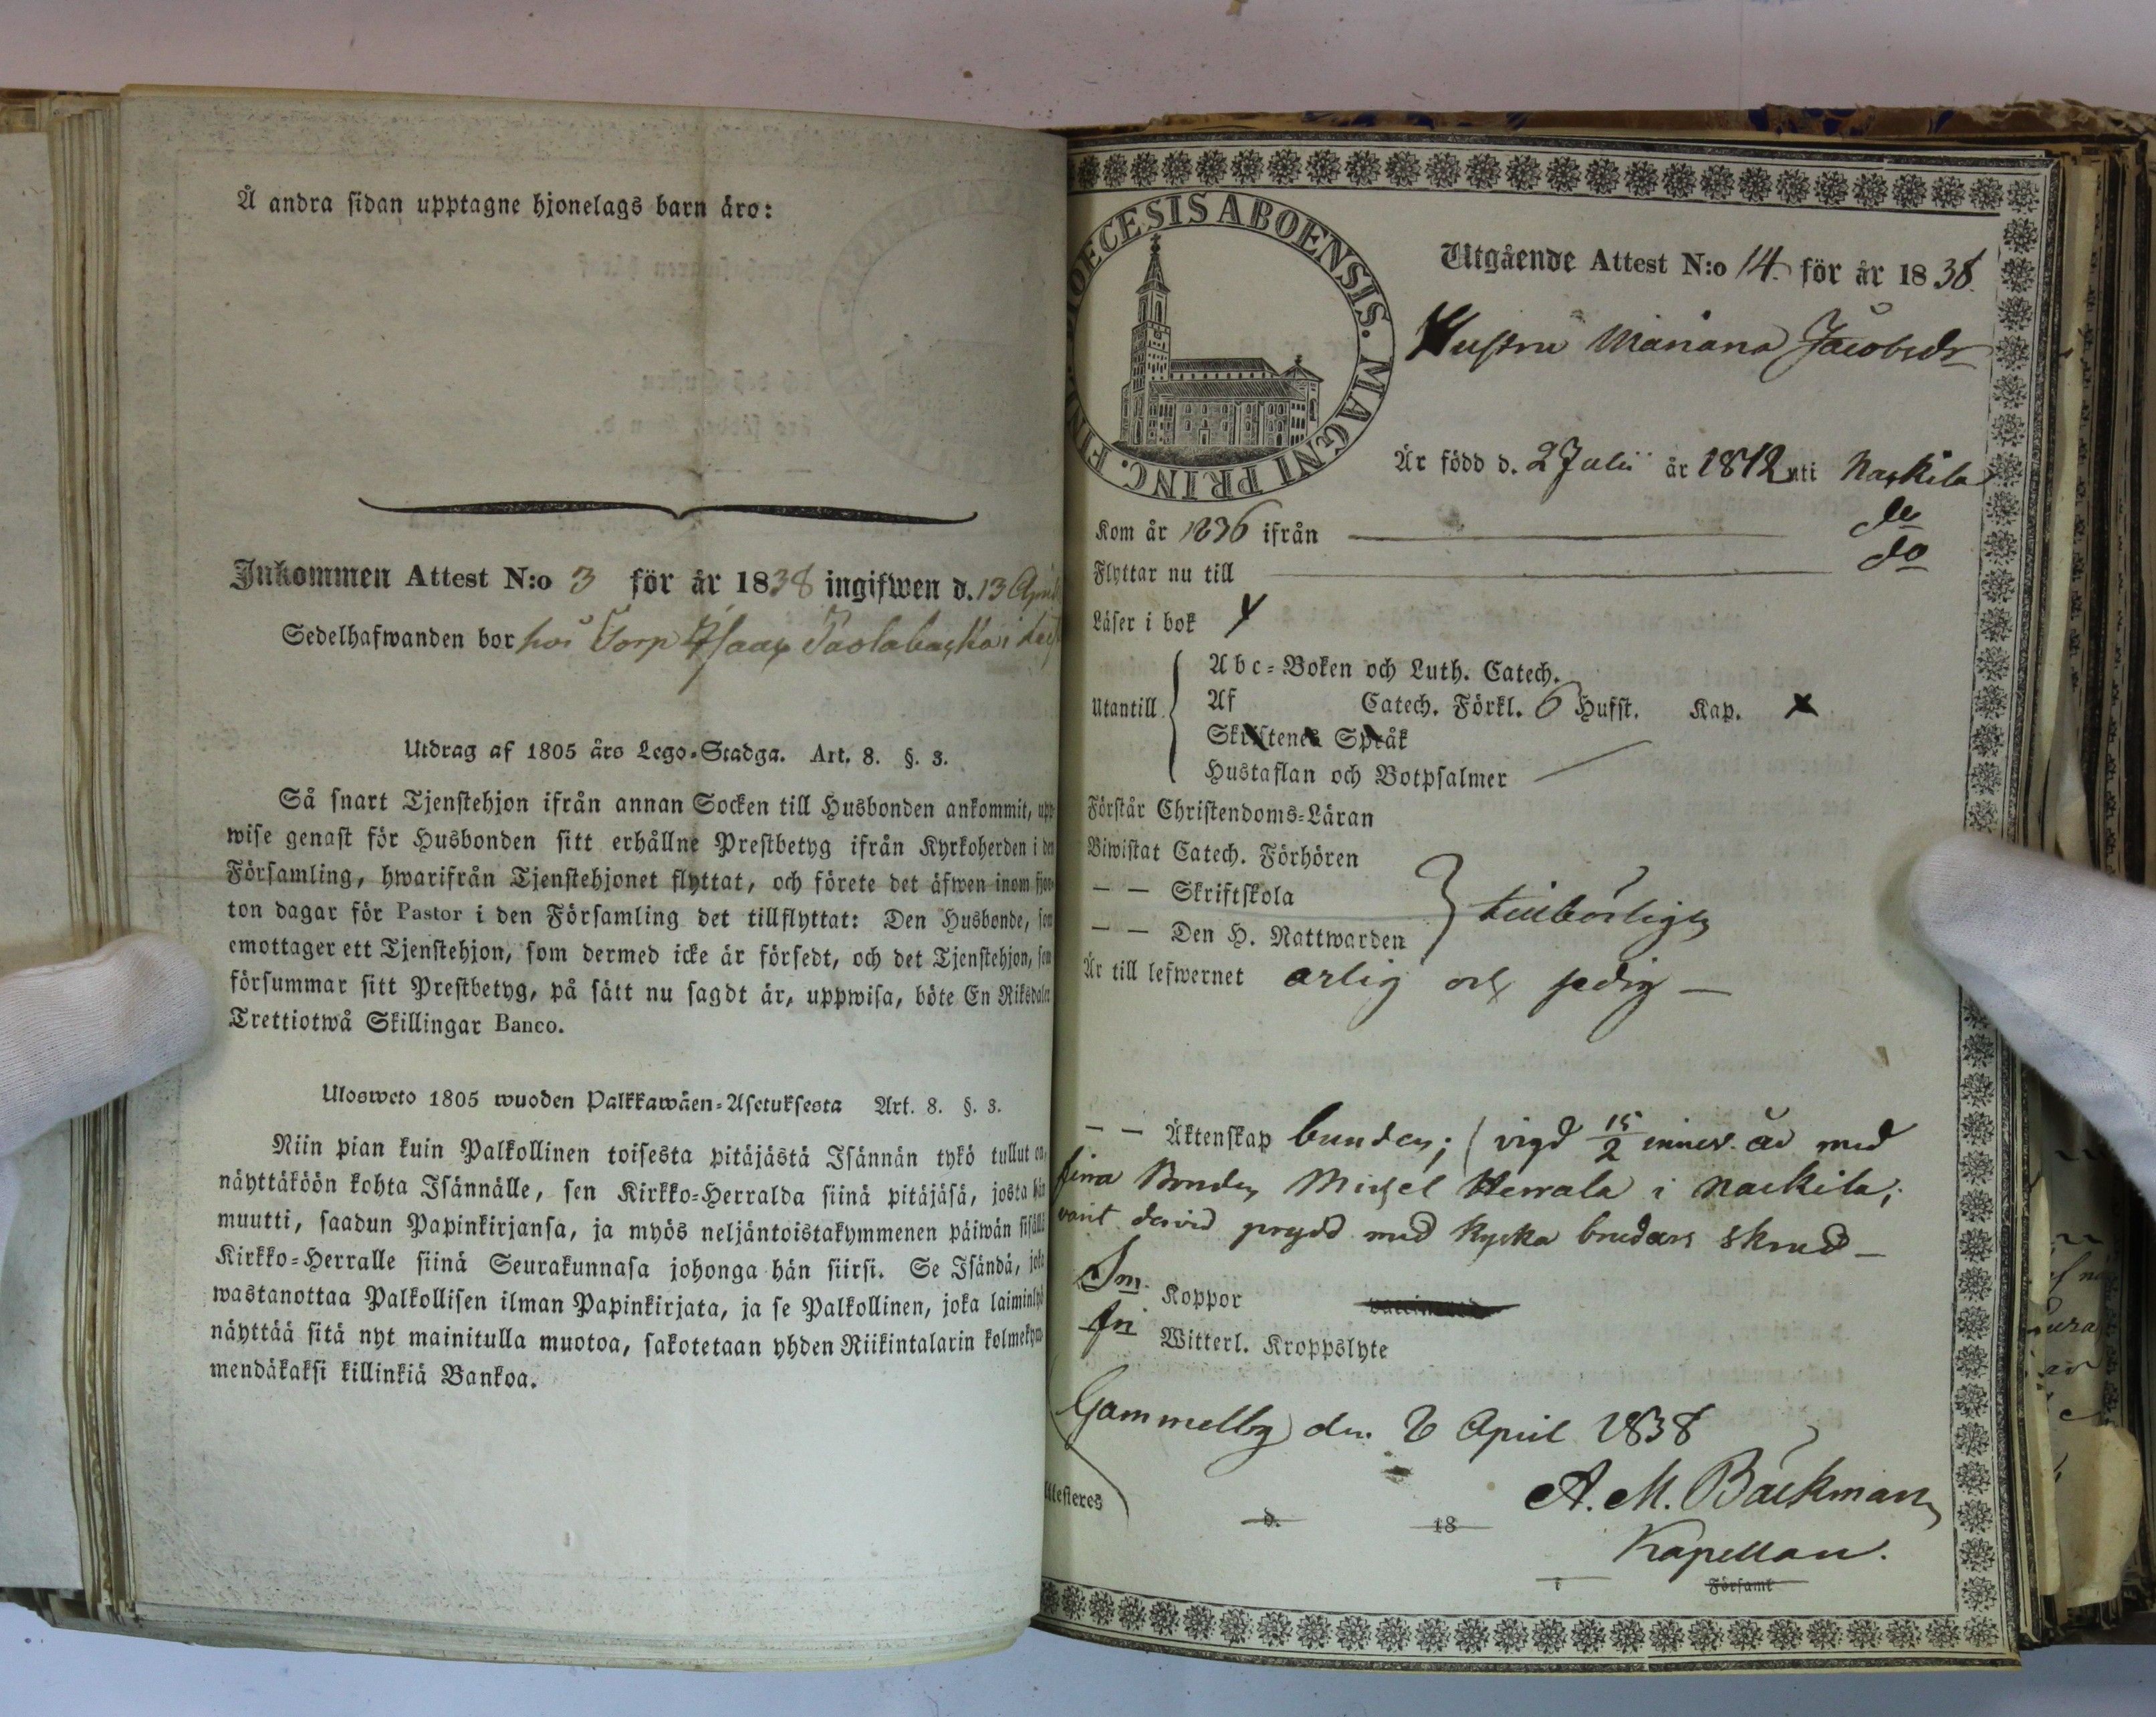 Å andra sidan upptagne hjonelags barn äro:
Inkommen Attest N:o 3 för år 1838 ingifwen d. 13 April
Sedelhafwanden bor hos Torp Isaac
Utdrag af 1805 års Lego-Stadga. Art. 8. §. 3.
Så snart Tjenstehjon ifrån annan Socken till Husbonden ankommit, upp-
wise genast för Husbonden sitt erhållne Prestbetyg ifrån Kyrkoherden i den
Församling, hwarifrån Tjenstehjonet flyttat, och förete det äfwen inom fjor-
ton dagar för Pastor i den Församling det tillflyttat: Den Husbonde, som
emottager ett Tjenstehjon, som dermed icke är försedt, och det Tjenstehjon, som
försummar sitt Prestbetyg, på sätt nu sagdt är, uppwisa, böte En Riksdaler
Trettiotwå Skillingar Banco.
Ulosweto 1805 wuoden Palkkawäen-Asetuksesta Art. 8. §. 3.
Niin pian kuin Palkollinen toisesta pitäjästä Isännän tykö tullut on,
näyttäköön kohta Isännälle, sen Kirkko-Herralda siinä pitäjäsä, josta hän
muutti, saadun Papinkirjansa, ja myös neljäntoistakymmenen päiwän sisällä
Kirkko-Herralle siinä Seurakunnasa johonga hän siirsi. Se Isändä, joka
wastanottaa Palkollisen ilman Papinkirjata, ja se Palkollinen, joka laiminlyö
näyttää sitä nyt mainitulla muotoa, sakotetaan yhden Riikintalarin kolmekym-
mendäkaksi killinkiä Bankoa.
DIOECESIS ABOENSIS. MAGNI PRINC. FINL.
Utgående Attest N:o 14 för år 1838.
Hustru Mariana Jacobsdr
Är född d. 2 Julii år 1812 uti Nackila
Kom år 1836 ifrån do
Flyttar nu till do
Läser i bok
Abc-Boken och Luth. Catech.
Utantill Af Catech. Förkl. 6 Hufst. Kap.
Skriftenes Språk
Hustaflan och Botpsalmer
Förstår Christendoms-Läran
Biwistat Catech. Förhören
— — Skriftskola
— — Den H. Nattwarden tillbörligen
Är till lefwernet ärlig och sedig —
— — Äktenskap bunden; (vigd 15/2 innev. år med
sina Bonden Michel Herrala i Nackila;
varit dervid prydd med kyska brudars skrud —
Sm. Koppor
fri Witterl. Kroppslyte
Gammelby den 6 April 1838
A. M. Bäckman
Kapellan.
Attesteres d. 18
i Församl